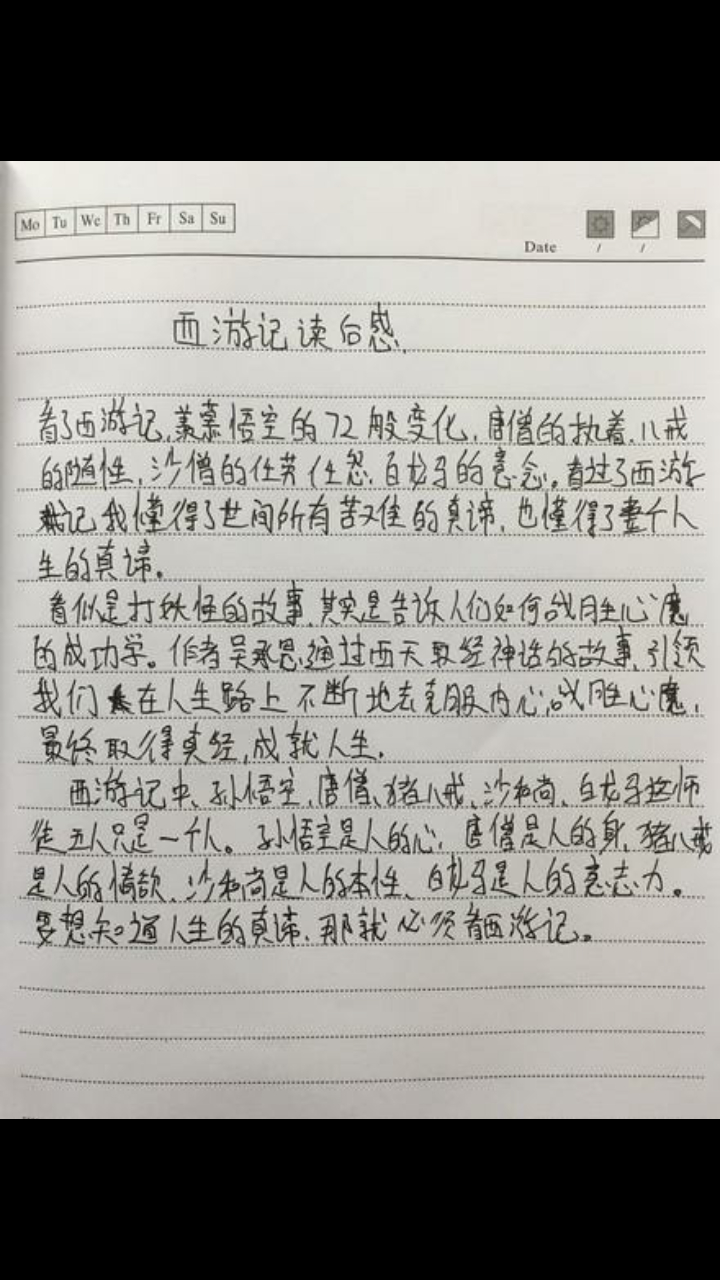 Mo Tu We Th Fr Sa Su
Date / /
西游记读后感.
看了西游记,羡慕悟空的72般变化,唐僧的执着,八戒
的随性,沙僧的任劳任怨,白龙马的意念。看过了西游
记我懂得了世间所有苦难的真谛,也懂得了整个人
生的真谛。
看似是打妖怪的故事,其实是告诉人们如何战胜心魔
的成功学。作者吴承恩通过西天取经神话的故事,引领
我们在人生路上不断地去克服内心,战胜心魔,
最终取得真经,成就人生.
西游记中,孙悟空,唐僧、猪八戒、沙和尚、白龙马这师
徒五人只是一个人。孙悟空是人的心,唐僧是人的身,猪八戒
是人的情欲、沙和尚是人的本性、白龙马是人的意志力。
要想知道人生的真谛、那就必须看西游记。